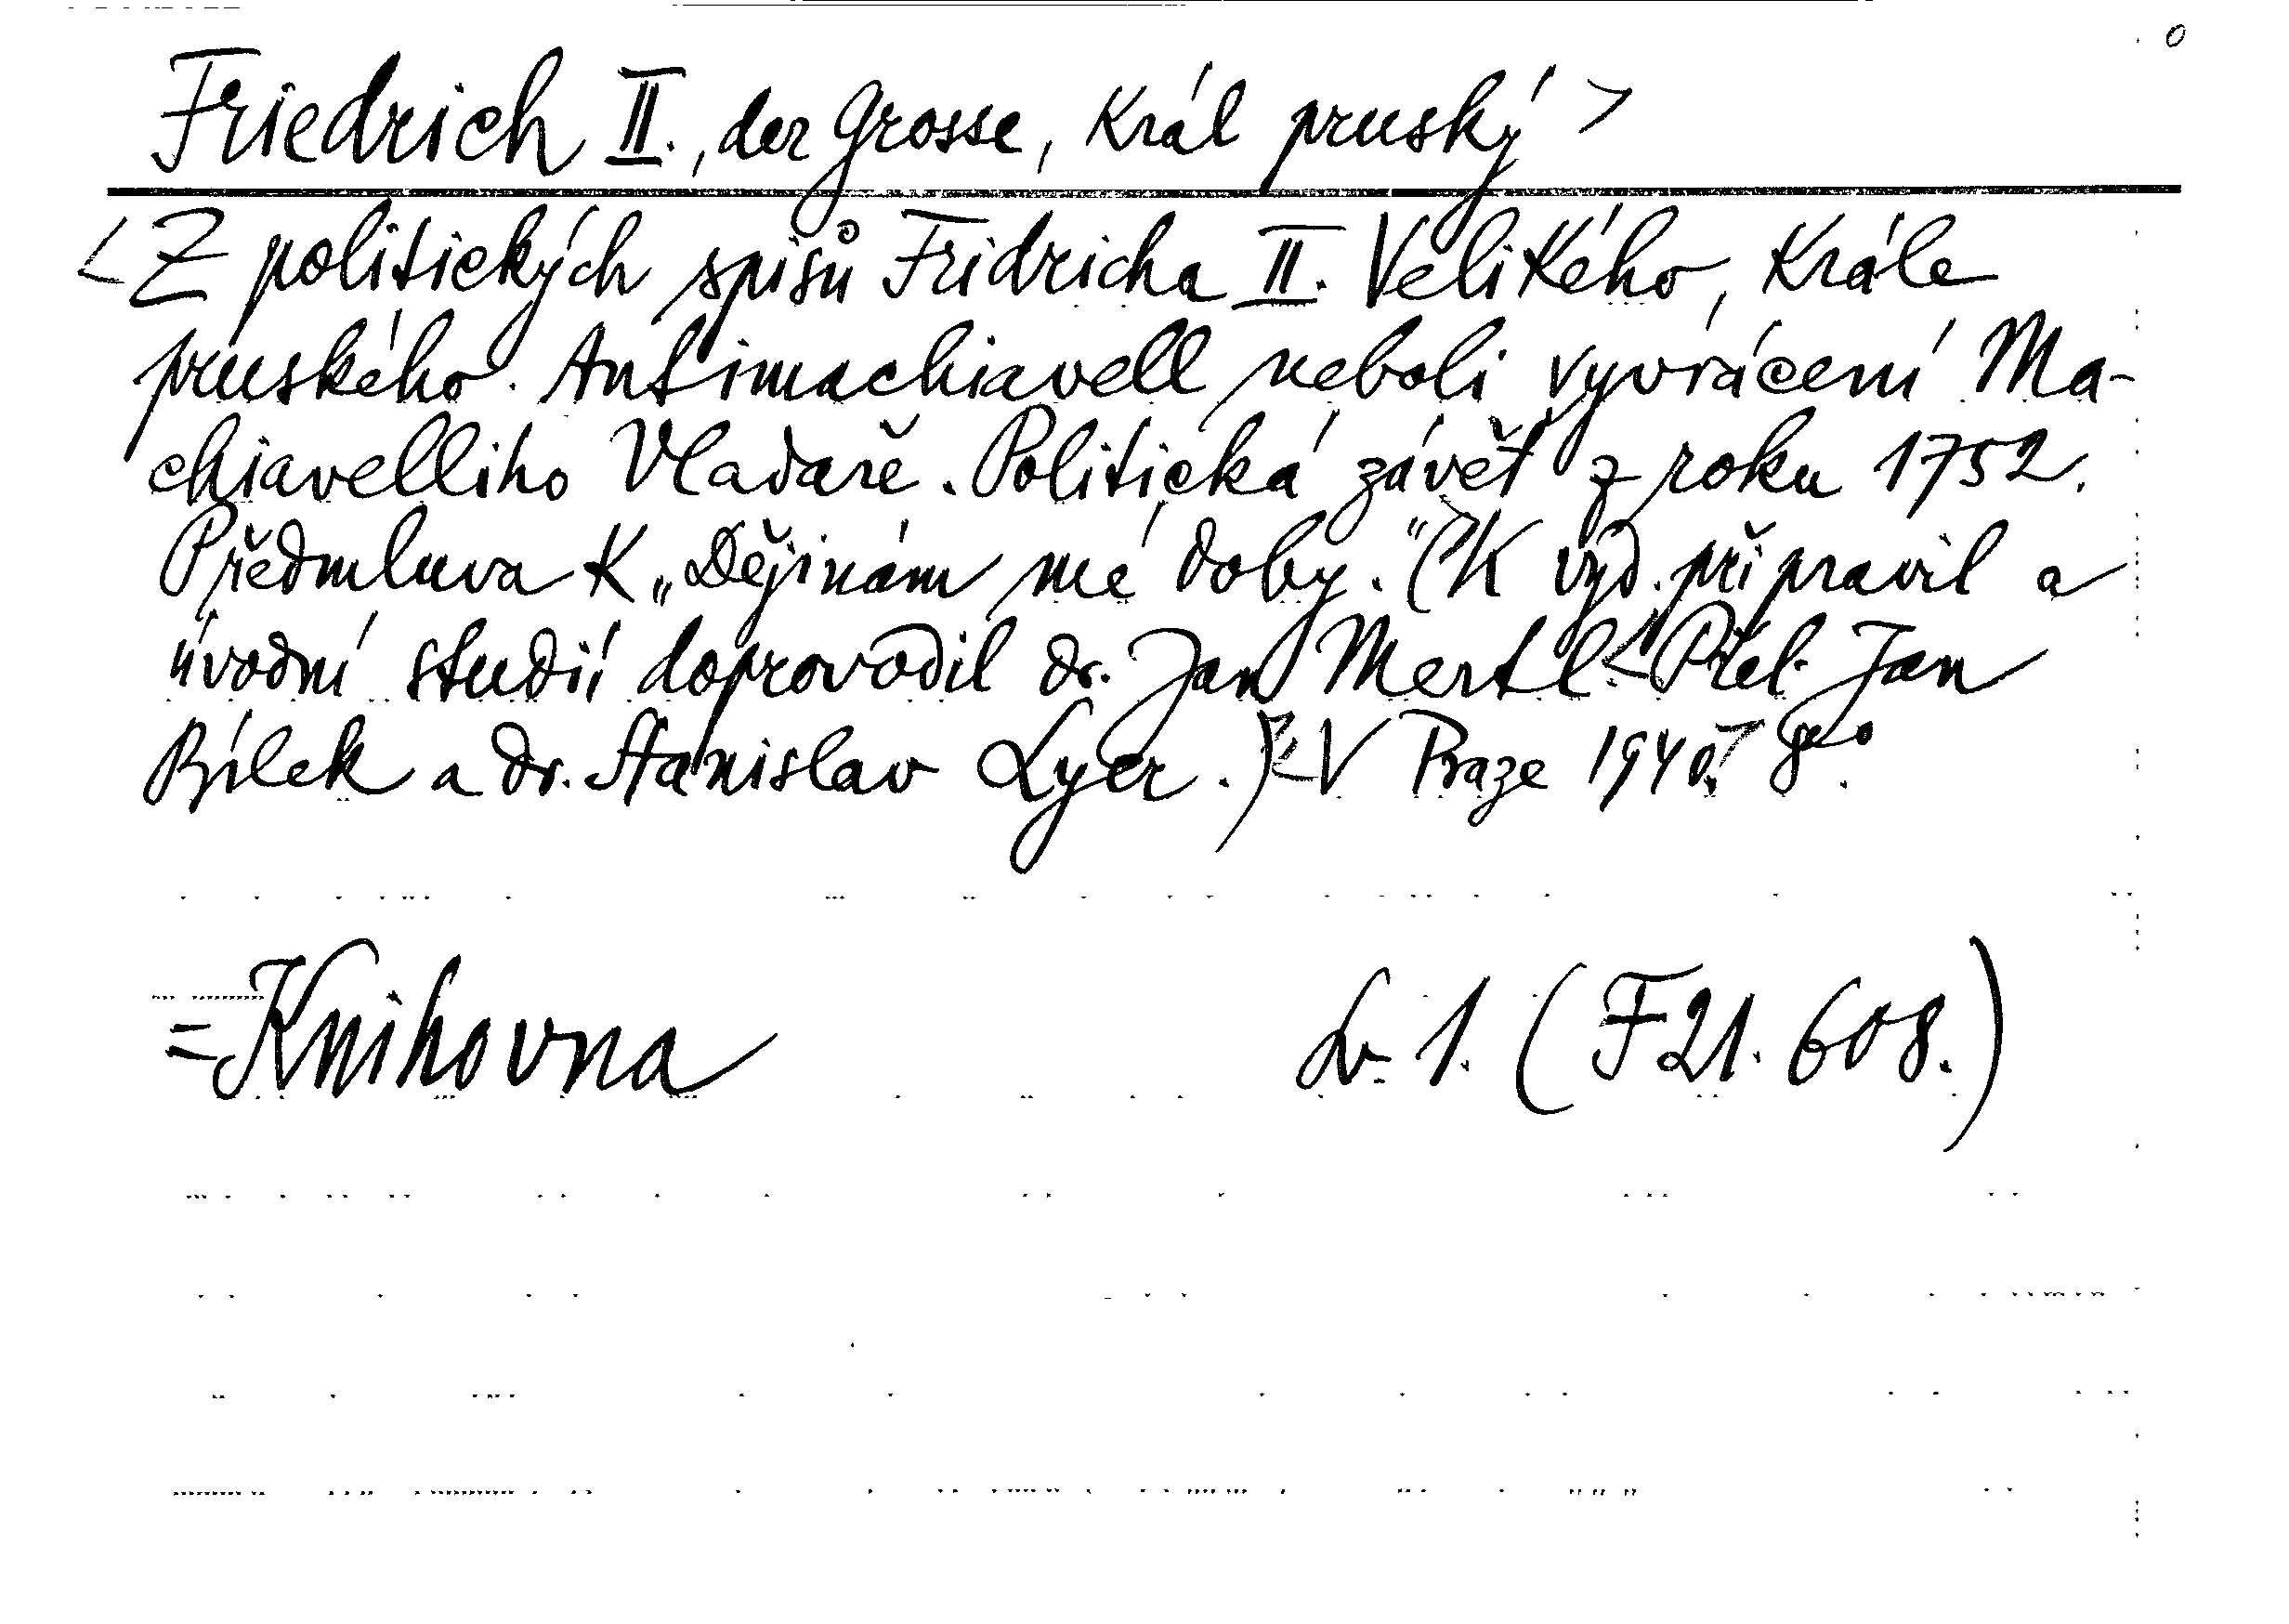 Friedrich II., der Grosse, král pruský >
< Z politických spisů Fridricha II. Velikého, krále
pruského. Antimachiavell neboli vyvrácení Ma-
chiavelliho Vladaře. Politická závěť z roku 1752.
Předmluva k „Dějinám mé doby.“ (K vyd. připravil a
úvodní studií doprovodil dr. Jan Mertl. < Přel. Jan
Bílek a dr. Stanislav Lyer.) < V Praze 1940. > 8°.
= Knihovna 1. (F 21. 608.)